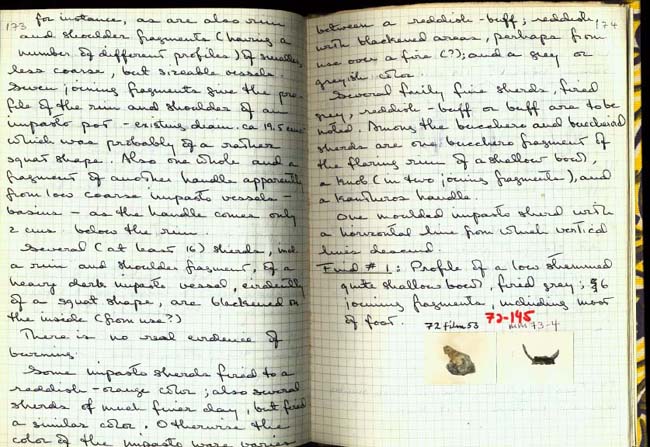 173
for instance, as are also rim
and shoulder fragments (having a
number of different profiles) of smaller,
less coarse, but sizeable vessels.
Seven joining fragments give the pro-
file of the rim and shoulder of an
impasto pot - existing diam. ca 19.5 cms
which was probably of a rather
squat shape. Also one whole and a
fragment of another handle apparently
from low coarse impasto vessels -
basins - as the handle comes only
2 cms below the rim.
Several (at least 16) sherds, incl.
a rim and shoulder fragment, of a
heavy dark impasto vessel, evidently
of a squat shape, are blackened on
the inside (from use?)
There is no real evidence of
burning.
Some impasto sherds fired to a
reddish-orange color; also several
sherds of much finer clay, but fired
a similar color. Otherwise the
color of the impasto ware varies
174
between a reddish-buff; reddish
with blackened areas, perhaps from
use over a fire (?); and a grey or
greyish color.
Several fairly fine sherds, fired
grey, reddish-buff or buff are to be
noted. Among the bucchero and buccheroid
sherds are one bucchero fragment of
the flaring rim of a shallow bowl,
a knob (in two joining fragments), and
a kantharos handle.
One moulded impasto sherd with
a horizontal line from which vertical
lines descend.
Find # 1: Profile of a low stemmed
quite shallow bowl, fired gray; 6
joining fragments, including most
of foot.
72-195
72 film 53
73-4